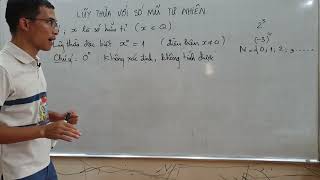 LŨY THỪA VỚI SỐ MŨ TỰ NHIÊN
x là số hữu tỉ (x ∈ Q)
thừa đặc biệt x⁰ = 1 (điều kiện x ≠ 0)
Chú ý: 0⁰ Không xác định, không tính được
2³
N = {0, 1, 2, 3, ......